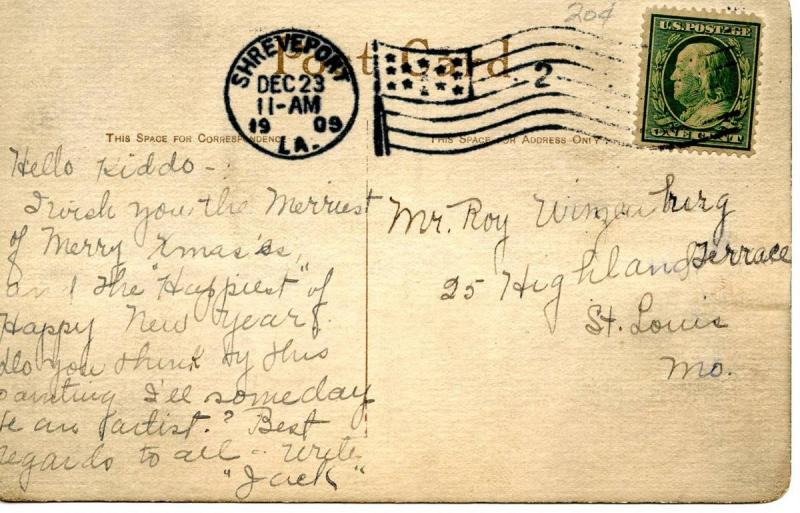 20¢
U.S. POSTAGE
ONE CENT
Post Card
SHREVEPORT
DEC 23
11-AM
19 09
LA.
2
THIS SPACE FOR CORRESPONDENCE
THIS SPACE FOR ADDRESS ONLY
Hello Kiddo -
I wish you the Merriest
of Merry Xmas'es,
and the "Happiest" of
Happy New Years.
Do you think by this
painting I'll someday
be an artist? Best
regards to all - Write
"Jack"
Mr. Roy Winzenburg
25 Highland Terrace
St. Louis
Mo.